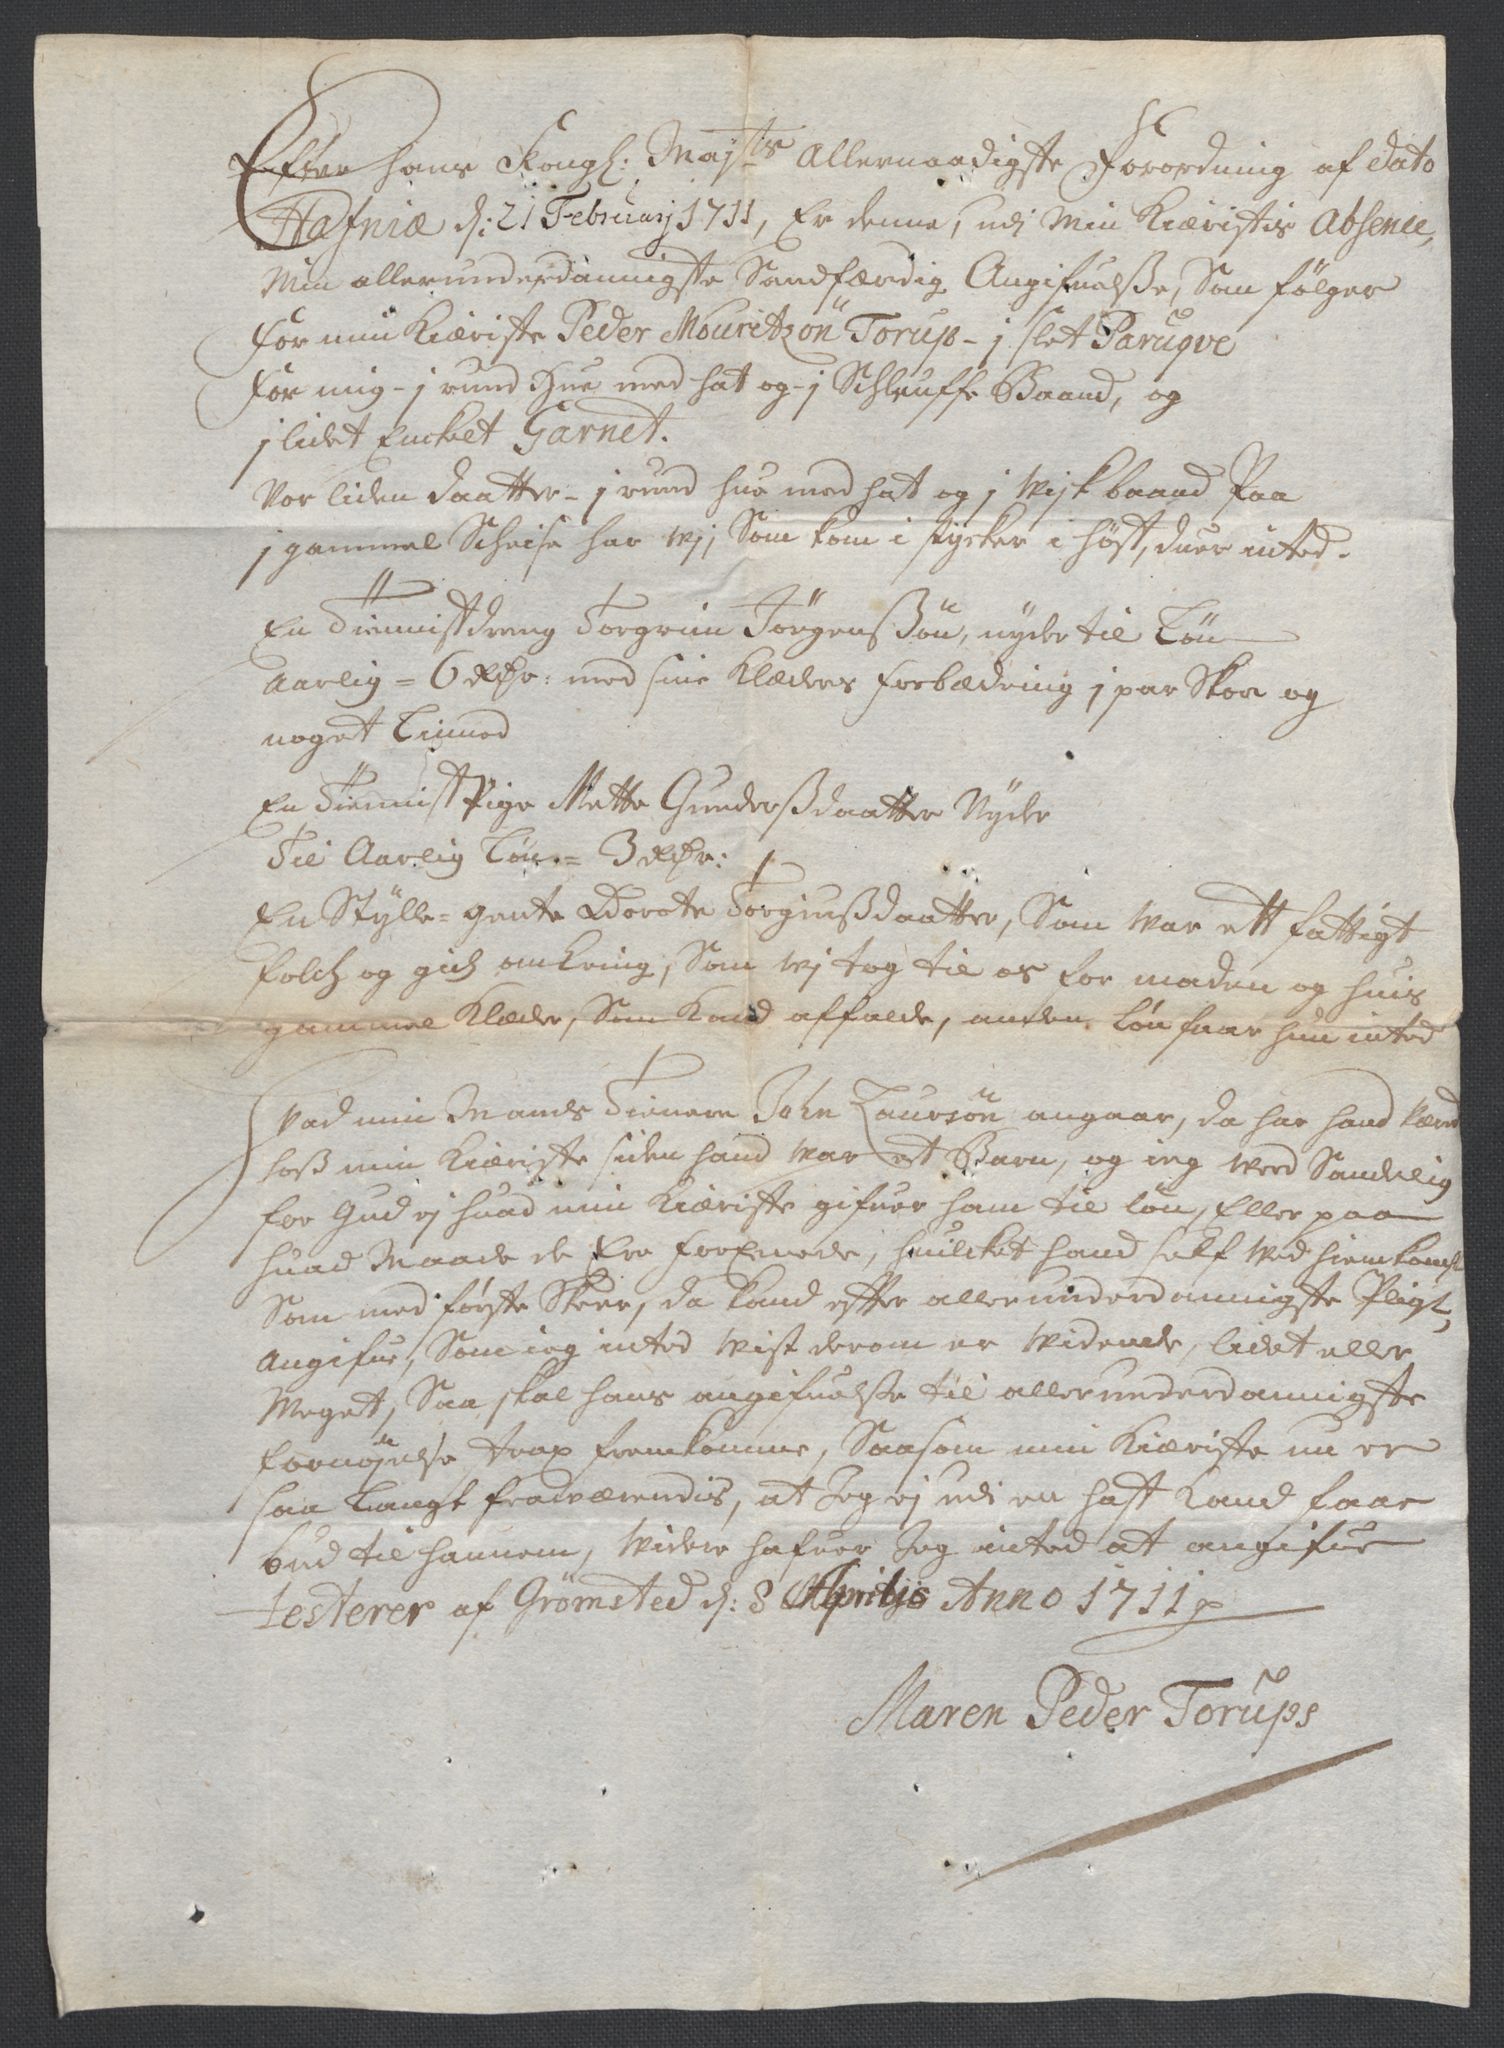 Efter hans Kongl: Maÿts Allernaadigste Forordning af dato
Hafniæ d: 21 Februarij 1711, Er denne, udj Min Kiæristis Absence,
Min allerunderdannigste Sandfærdig Angifuelsse, Som følger
For min Kiæriste Peder Mouritzøn Torup - j slet Paruqve
For mig - j rund Hue med hat og - j Schleuffe Baand, og
j lidet Encket Garnet.
Vor liden daatter - j rund hue med hat og j Wijk baand Paa
j gammel Scheise har wj, Som kom i stycker i høst, duer inted.
En Tiennistdreng Torgrim Jørgenssøn, nyder til Løn
Aarlig = 6 Rdr: med sine Klæders forbædring j par Skoe og
noget Linned
En Tiennist Pige Mette Gundersdaatter Nyder
Til Aarlig Løn = 3 Rdr:
En Stylle = gente Dorote Torgiussdaatter, Som War ett fattigt
folch og gich omkring, Som wj tog til os for maden og huis
gammel Klæder, Som Kand affalde, anden Løn faar hun inted
Hvad min Mands Tienere John Laursøn angaar, da har hand væred
hoss min Kiæriste siden hand War et Barn, og ieg weed Sandelig
for Gud ej huad min Kiæriste gifuer ham til løn, Eller paa
huad Maade de Ere forEenede, huilcket hand self Wed hiemkomst
Som med første Skeer, da kand effter allerunderdannigste Pligt,
Angifue, Som ieg inted Wist derom er Widende, lidet eller
Meget, Saa skal hans angifuelsse til allerunderdannigste
fornøjelse strax fremkomme, Saasom min Kiæriste nu er
saa Langt fraværendis, at Jeg ej udi en hast Kand faae
bud til hannem, Widere hafuer Jeg inted at angifue
testerer af Grømsted d: 8 Aprilis Anno 1711
Maren Peder Torups